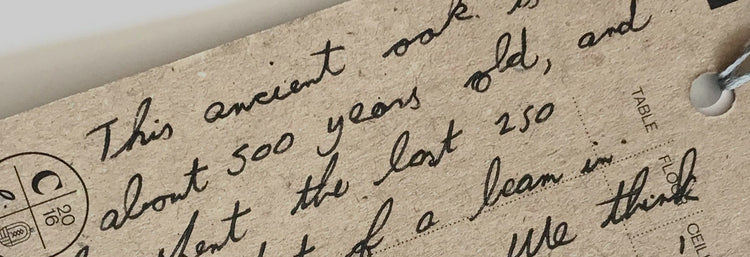 This ancient oak is
about 500 years old, and
the last 250
of a beam in
We think
TABLE
FLOOR
CEIL
C
20
16